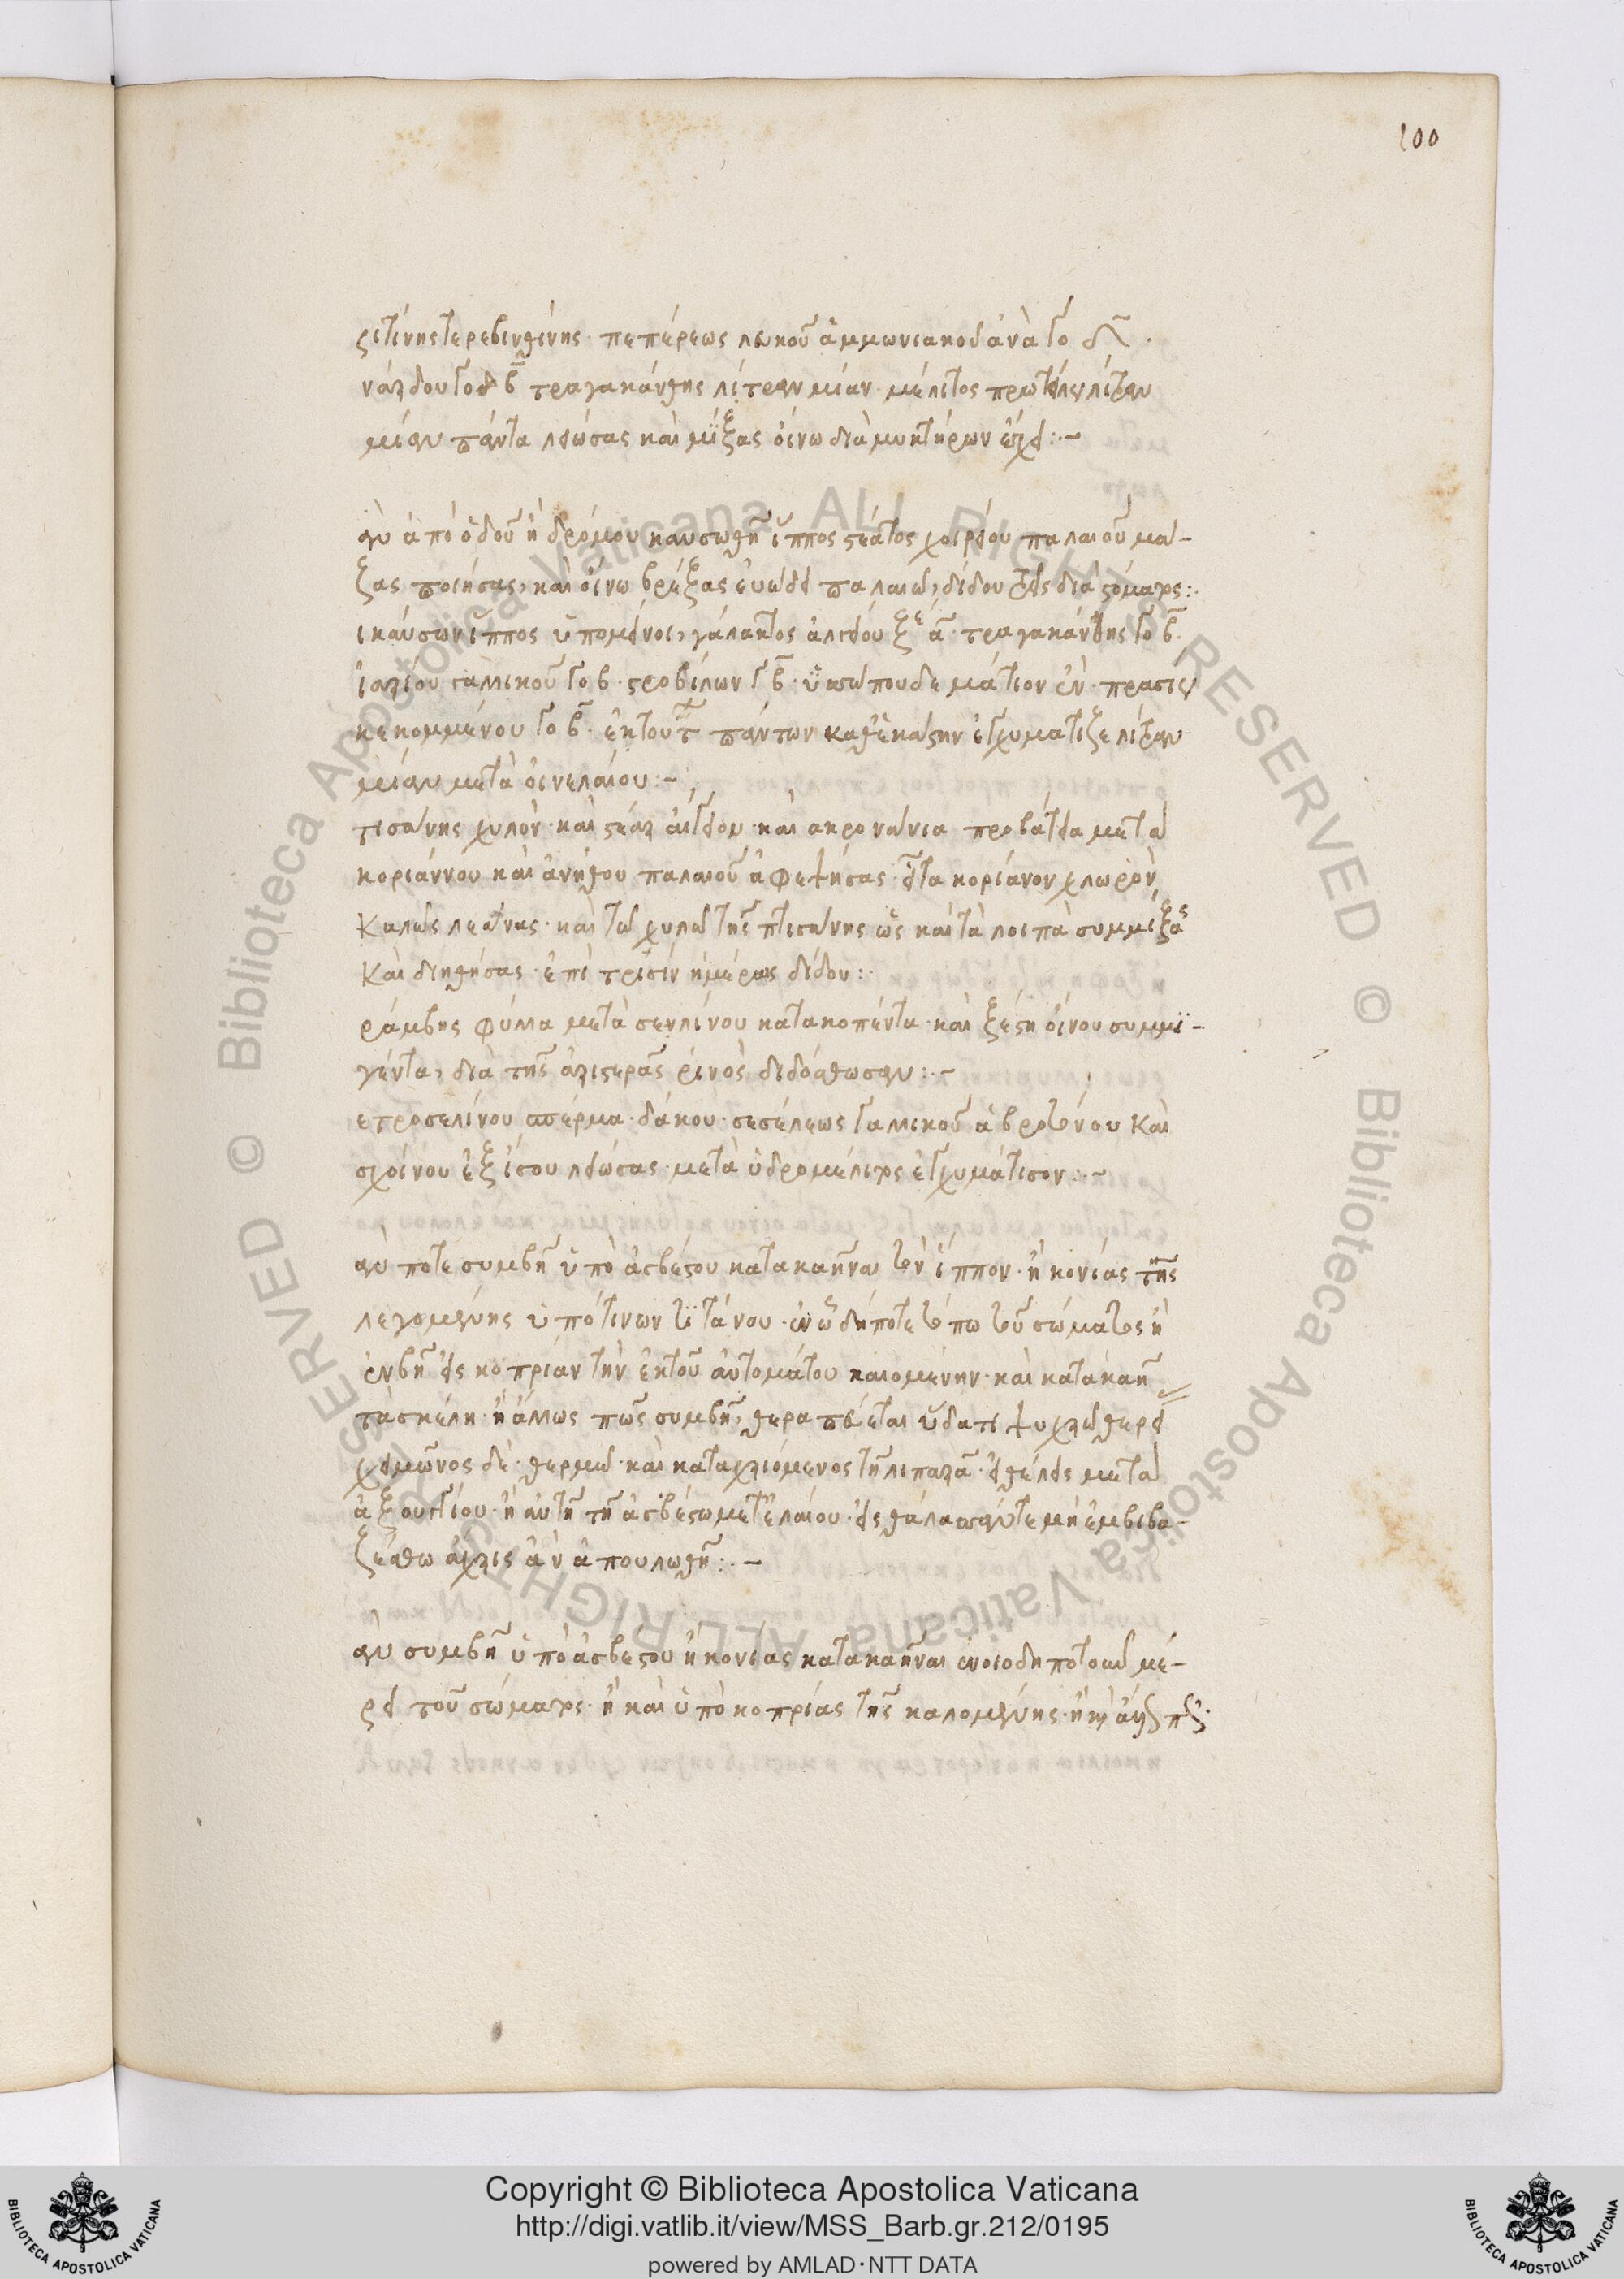 100
ῥιτίνης τερεβινθίνης· πεπέρεως λευκοῦ ἀμμωνιακοῦ ἀνὰ γο
νάρδου γο β τραγακάνθης λίτραν μίαν· μέλιτος πρωτείου λίτραν
μίαν πάντα λειώσας καὶ μίξας οἴνω διὰ μυκτήρων ἔγχει:·~
ὰν ἀπὸ ὁδοῦ ἢ δρόμου καυσωθῆ ἵππος στέατος χοιρείου παλαιοῦ μά-
ζας ποιήσας, καὶ οἴνω βρέξας εὐώδει παλαιῶ, δίδου τρεῖς διὰ στόματος:·
ι καύσων ἵππος ὑπομένοι, γάλακτος ὀνείου ξε ᾱ· τραγακάνθης γο β·
ἰρίου γαλλικοῦ γο β· στροβίλων γο β· ὑσσώπου δεμάτιον ἓν· πρασίου
κεκομμένου γο β· ἐκ τούτ πάντων καθεκάστην ἐγχυμάτιζε λίτραν
μίαν μετὰ οἰνελαίου:~
τισάνης χυλὸν· καὶ στέαρ αἴγειον· καὶ ακροκώλια προβάτεια μετὰ
κοριάννου καὶ ἀνήθου παλαιοῦ ἀφεψήσας· εἶτα κορίανον χλωρὸν
Καλῶς λεάνας· καὶ τῶ χυλῶ τῆς πτισάνης ὡς καὶ τὰ λοιπὰ συμμίξας
Καὶ διηθήσας· ἐπὶ τρισὶν ἡμέρας δίδου:·
ράμβης φύλλα μετὰ σευλίνου κατακοπέντα· καὶ ξέστη οἴνου συμμι-
γέντα, διὰ τῆς ἀριστερᾶς ῥινὸς διδόσθωσαν:·~
ετροσελίνου σπέρμα· δάκου· σεσέλεως γαλλικοῦ ἀβροτόνου Καὶ
σχοίνου ἐξίσου λειώσας· μετὰ ὑδρομέλιτος ἐγχυμάτισον:·~
ὰν ποτε συμβῆ ὑπὸ ἀσβέστου κατακαῆναι τὸν ἵππον· ἢ κονίας τῆς
λεγομένης ὑπό τινων τιτάνου· ἐν ᾧ δήποτε τόπω τοῦ σώματος ἢ
ἐνβῆ εἰς κοπρίαν τὴν ἐκ τοῦ αὐτομάτου καιομένην· καὶ κατακαῆ
τὰ σκέλη· ἢ ἄλλως πῶς συμβῆ, θεραπεύεται ὕδατι ψυχρῶ θέρει
χειμῶνος δὲ· θερμῶ· καὶ καταχριόμενος τῆ λιπαρᾶ· εἰ θέλεις μετὰ
ἀξουγγίου· ἢ αὐτῆ τῆ ἀσβέστω μετ' ἐλαίου· εἰς θάλασσάν τε μὴ ἐμβιβα-
ζέσθω ἄχρις ἂν ἀπουλωθῆ:·~
ὰν συμβῆ ὑπὸ ἀσβέστου ἢ κονίας κατακαῆναι ἐν οιοδήποτοῦν μέ-
ρει τοῦ σώματος· ἢ καὶ ὑπὸ κοπρίας τῆς καλομένης· ἢ
Copyright © Biblioteca Apostolica Vaticana
http://digi.vatlib.it/view/MSS_Barb.gr.212/0195
powered by AMLAD·NTT DATA
BIBLIOTECA APOSTOLICA VATICANA
BIBLIOTECA APOSTOLICA VATICANA
© Biblioteca Apostolica Vaticana ALL RIGHTS RESERVED © Biblioteca Apostolica Vaticana ALL RIGHTS RESERVED